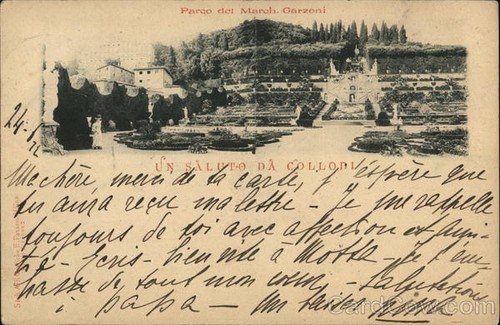 Parco del March. Garzoni
24
UN SALUTO DA COLLODI
Ma chère, merci de ta carte, j'éspère que
tu aura reçu ma lettre - je me rappelle
toujours de toi avec affection et ami-
tié - Ecris - bien vite à Motta - je t'em-
brasse de tout mon coeur - Salutations
à papa - un
CardCow.com